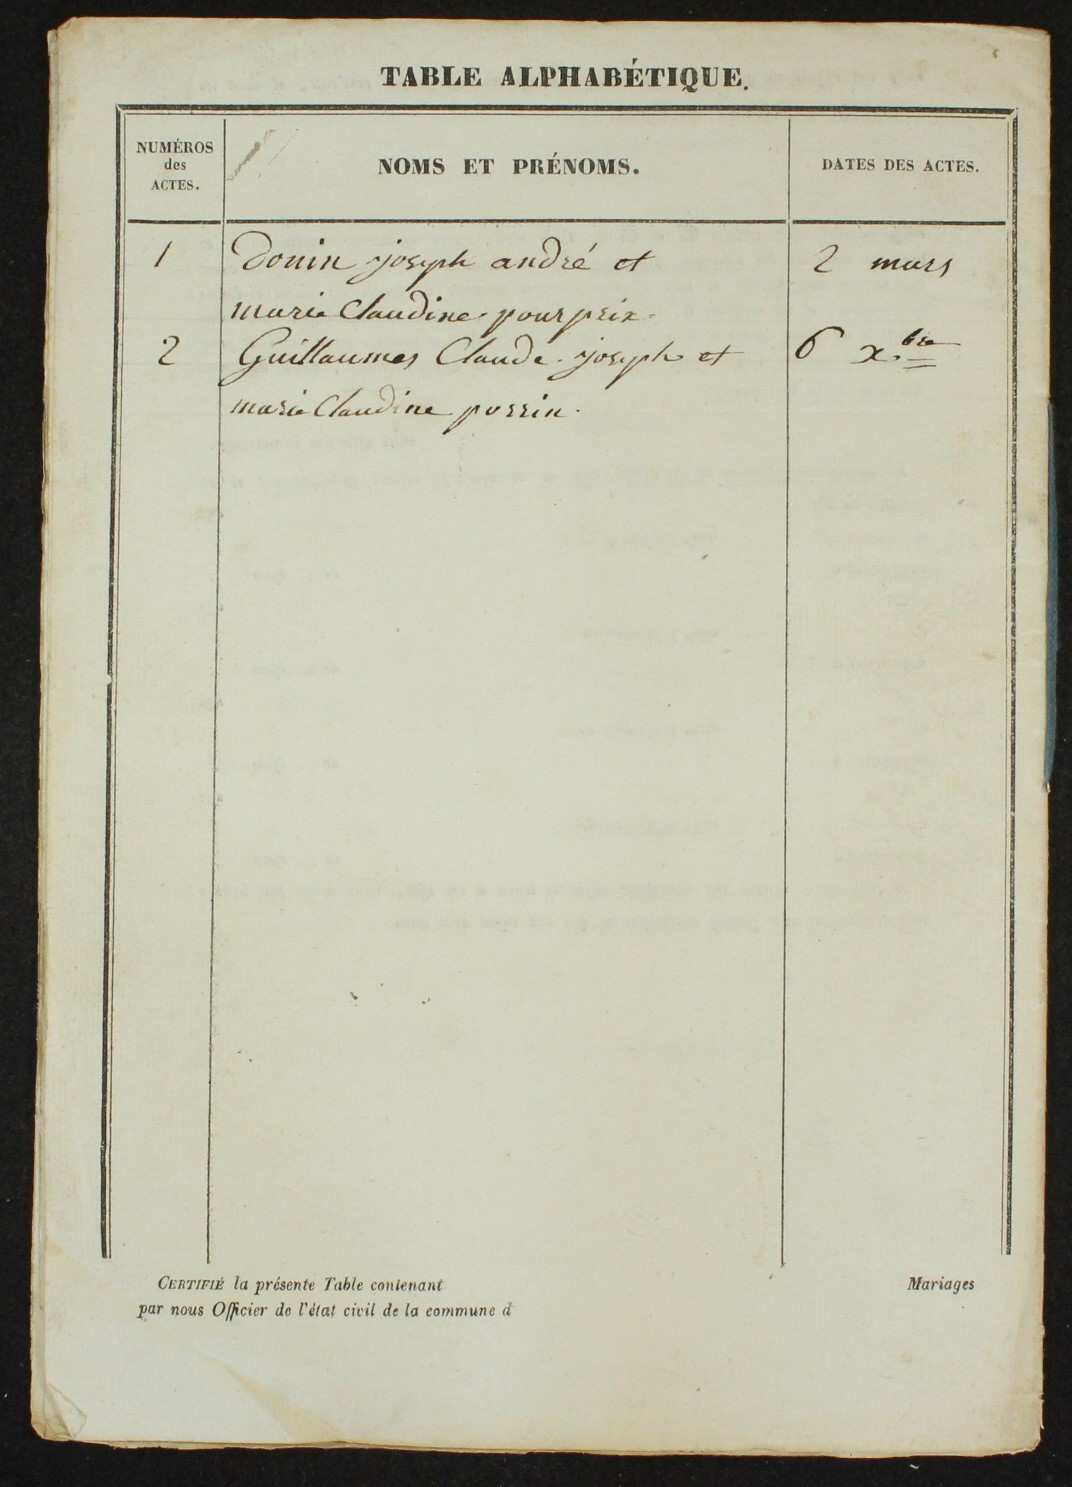 TABLE ALPHABÉTIQUE.
NUMÉROS
des
ACTES.
NOMS ET PRÉNOMS.
DATES DES ACTES.
1 Donin joseph andré et 2 mars
marie Claudine pourprix.
2 Guillaumes Claude joseph et 6 x.bre
marie Claudine perrin.
CERTIFIÉ la présente Table contenant Mariages
par nous Officier de l'état civil de la commune d